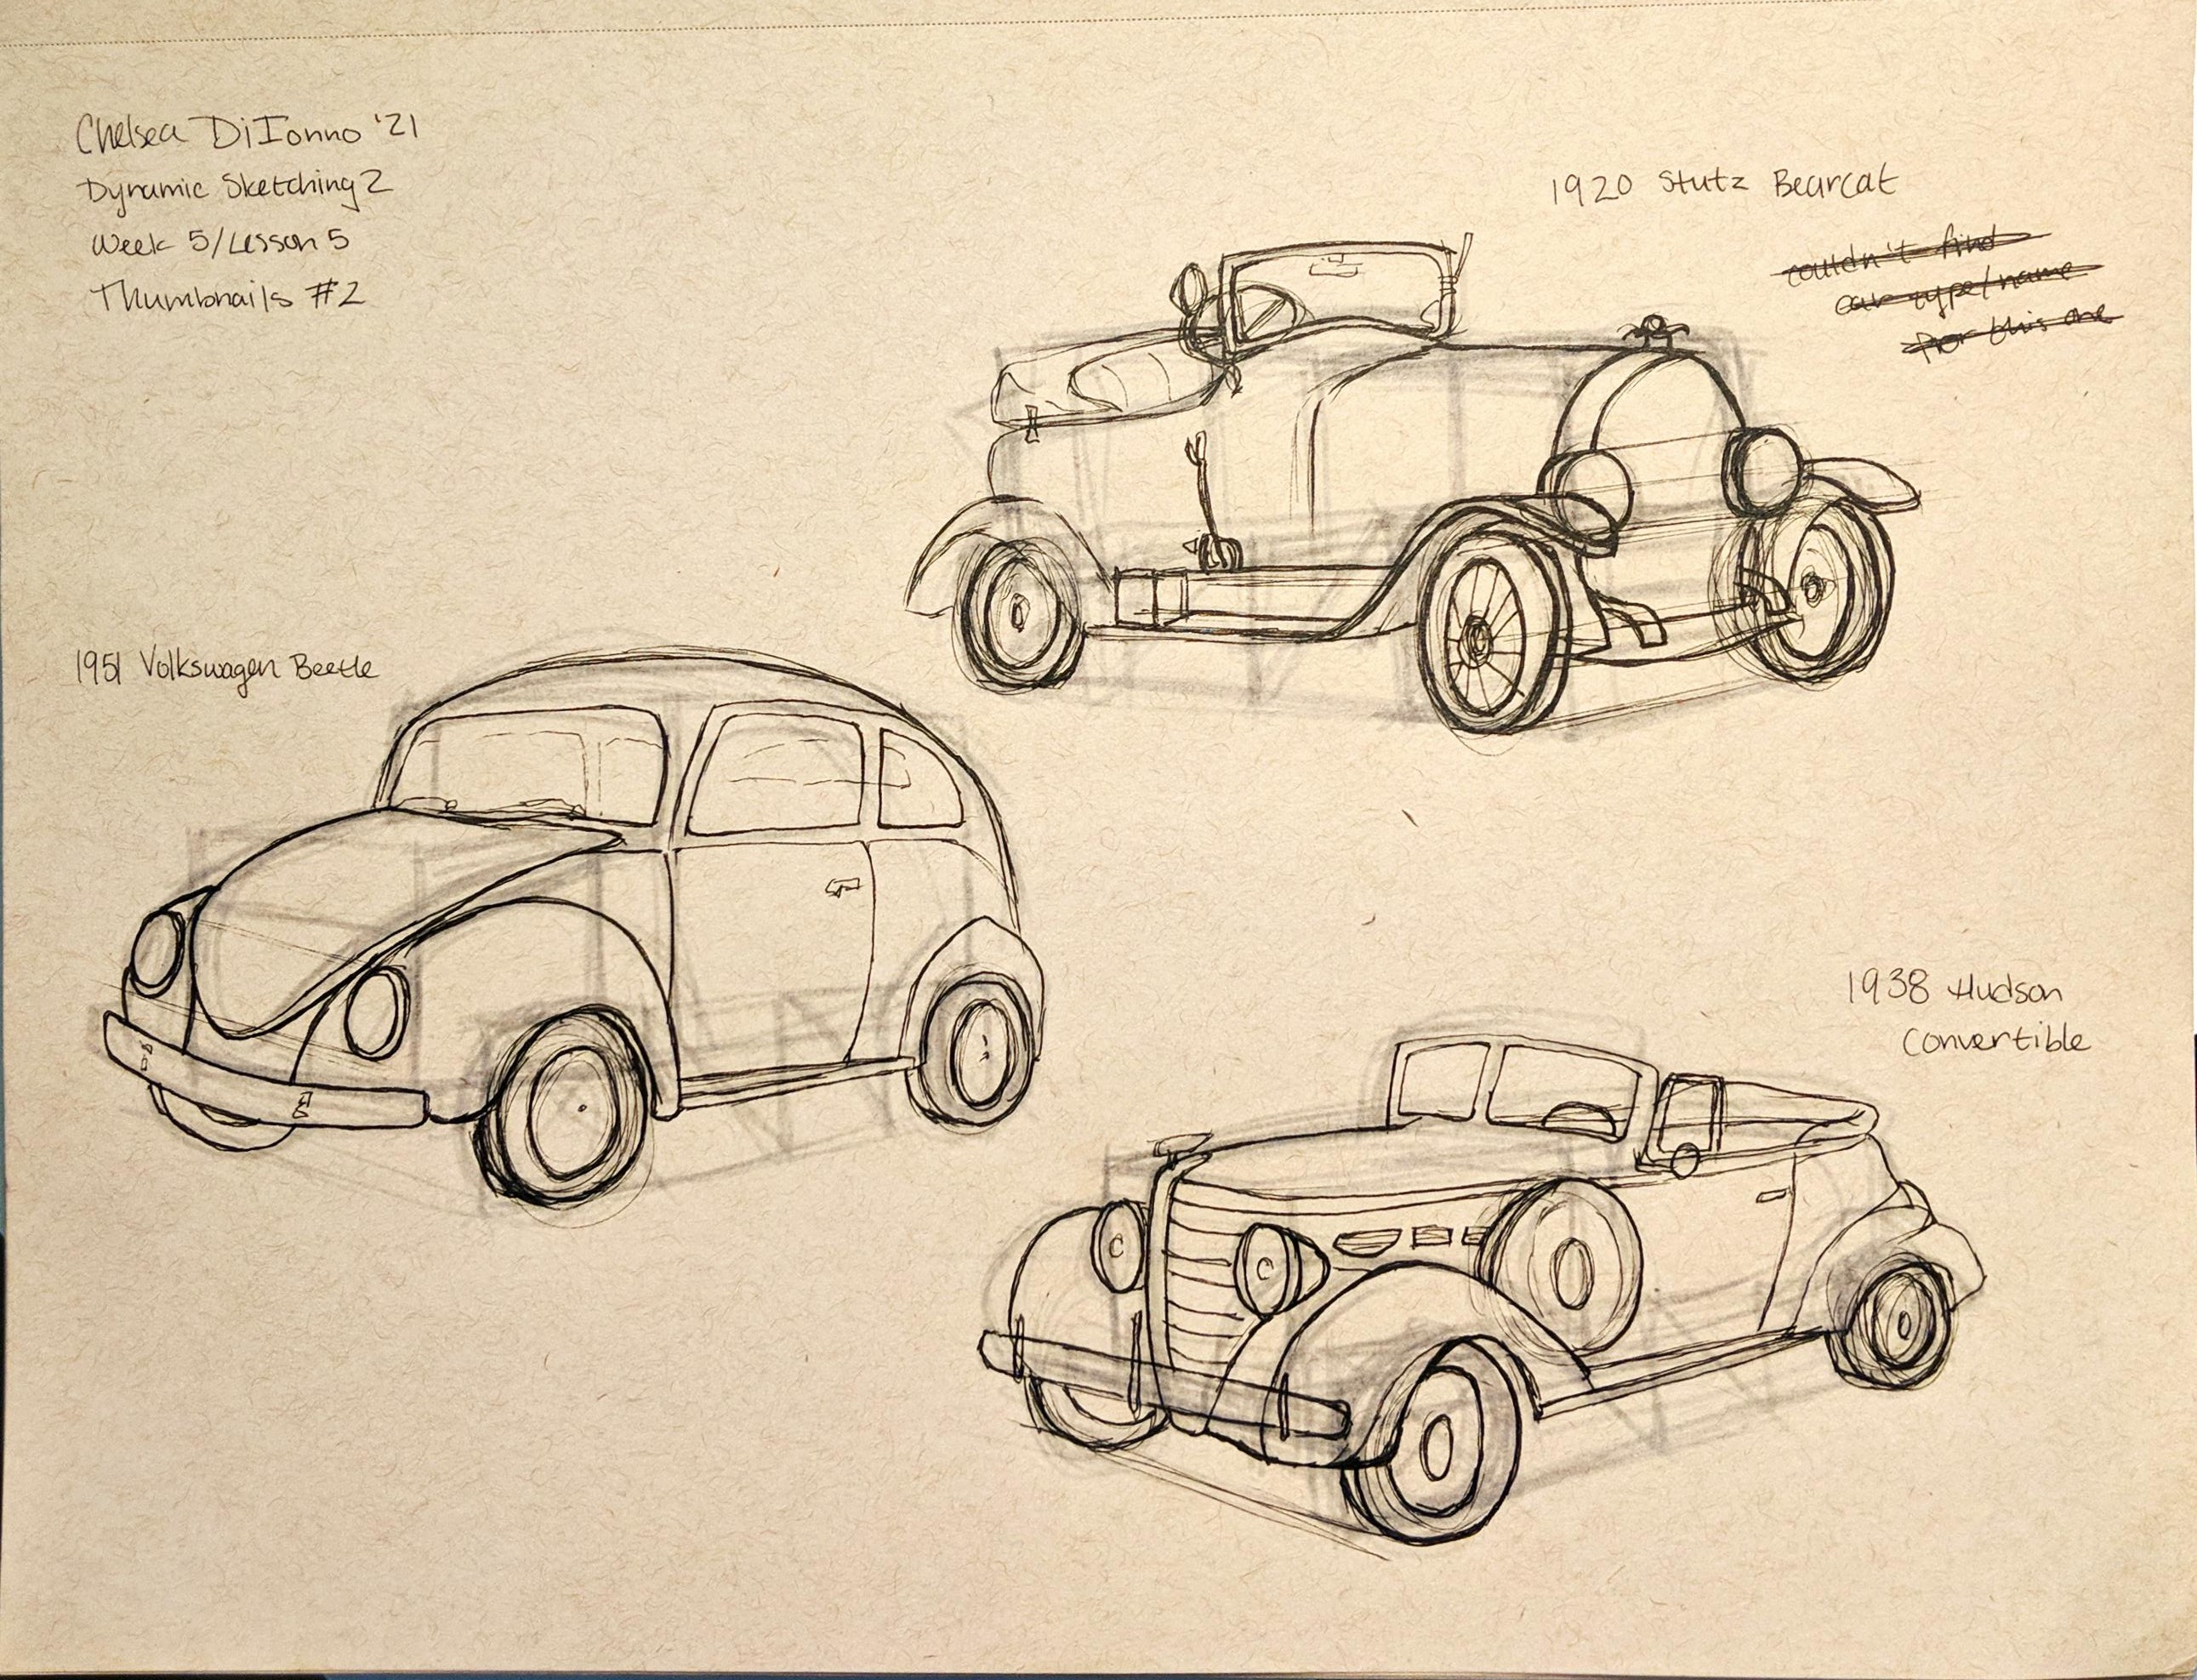 Chelsea DiIonno '21
Dynamic Sketching 2
Week 5/Lesson 5
Thumbnails #2
1920 Stutz Bearcat
couldn't find
car type/name
for this one
1951 Volkswagen Beetle
1938 Hudson
Convertible